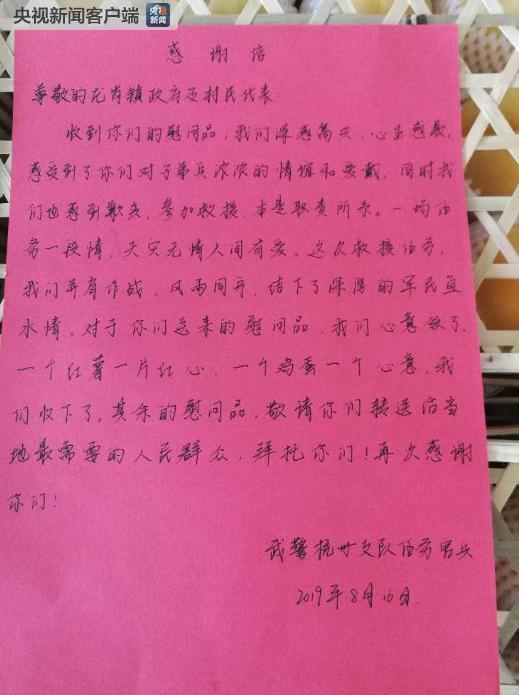 央视新闻客户端
央视新闻
感谢信
尊敬的龙岗镇政府及村民代表：
收到你们的慰问品，我们深感高兴，心生感激，
感受到了你们对子弟兵浓浓的情谊和爱戴，同时我
们也感到歉疚，参加救援，本是职责所系。一场任
务一段情，天灾无情人间有爱。这次救援任务，
我们并肩作战，风雨同舟，结下了深深的军民鱼
水情。对于你们送来的慰问品，我们心意领了，
一个红薯一片红心，一个鸡蛋一个心意，我
们收下了。其余的慰问品，敬请你们转送给当
地最需要的人民群众，拜托你们！再次感谢
你们！
武警杭州支队任务官兵
2019年8月16日